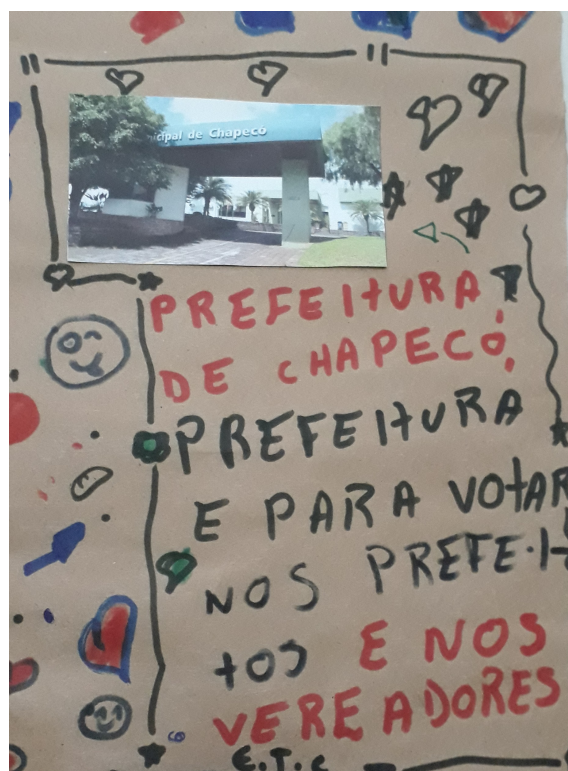 cipal de Chapecó
PREFEITURA,
DE CHAPECÓ,
PREFEITURA
E PARA VOTAR
NOS PREFEI-
TOS E NOS
VEREADORES
E.T.C